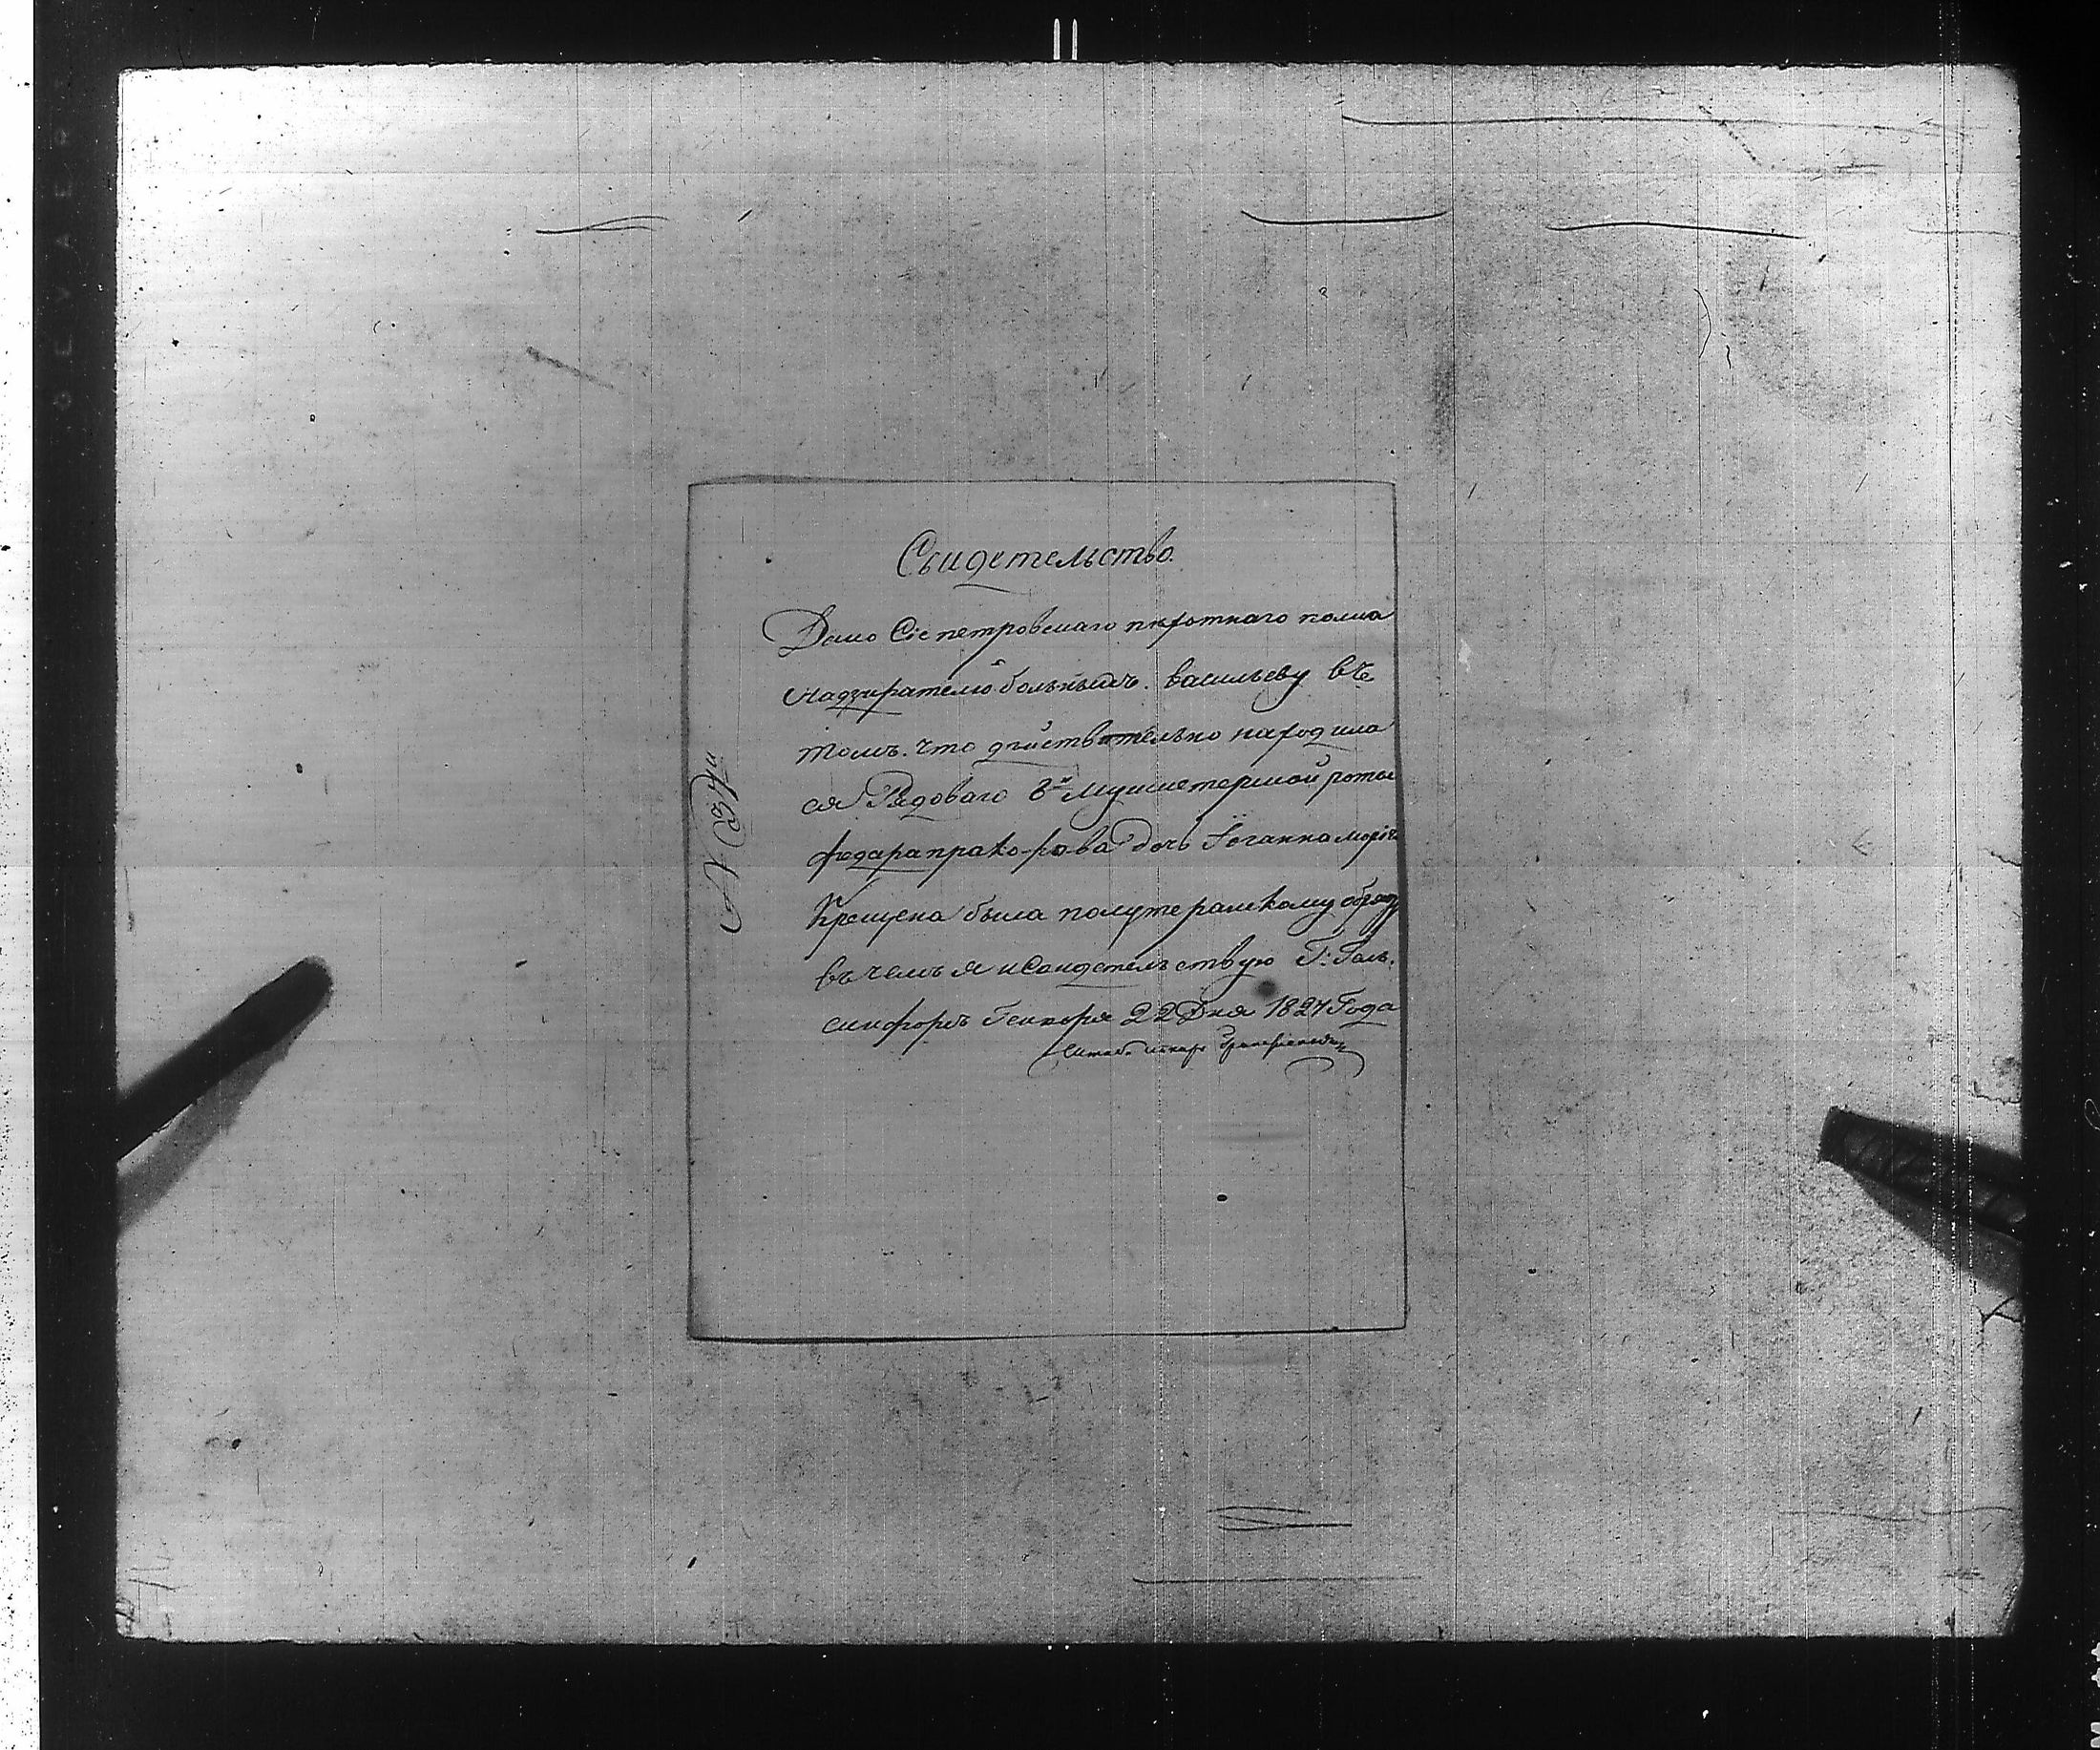 Свидетельство.
Дано Сіе петровскаго пехотнаго полка
Надзирателю больныхъ. васильеву въ
томъ. что действительно народила
ся Рядоваго 8й Мушкетерской роты
федара прако-рова дочь Іоганна марія
Крещена была полутеранскому обряду
въ чемъ я и Свидетельствую Г: Гель.
сингфорсъ Генваря 22 Дня 1827 Года
Штабъ лекарь
N 37й